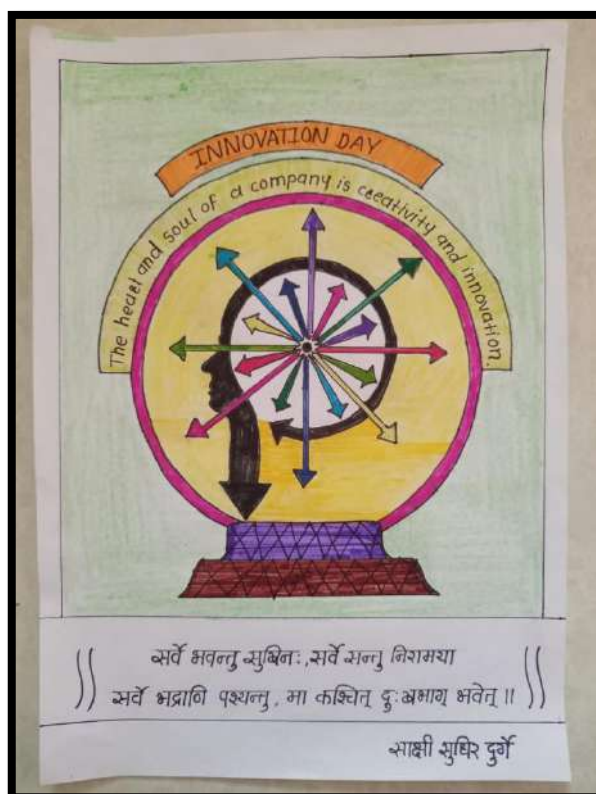 INNOVATION DAY
The heart and soul of a company is creativity and innovation.
सर्वे भवन्तु सुखिनः, सर्वे सन्तु निरामया
सर्वे भद्राणि पश्यन्तु, मा कश्चित् दुःखभाग् भवेत् ॥
साक्षी सुधिर दुर्गे